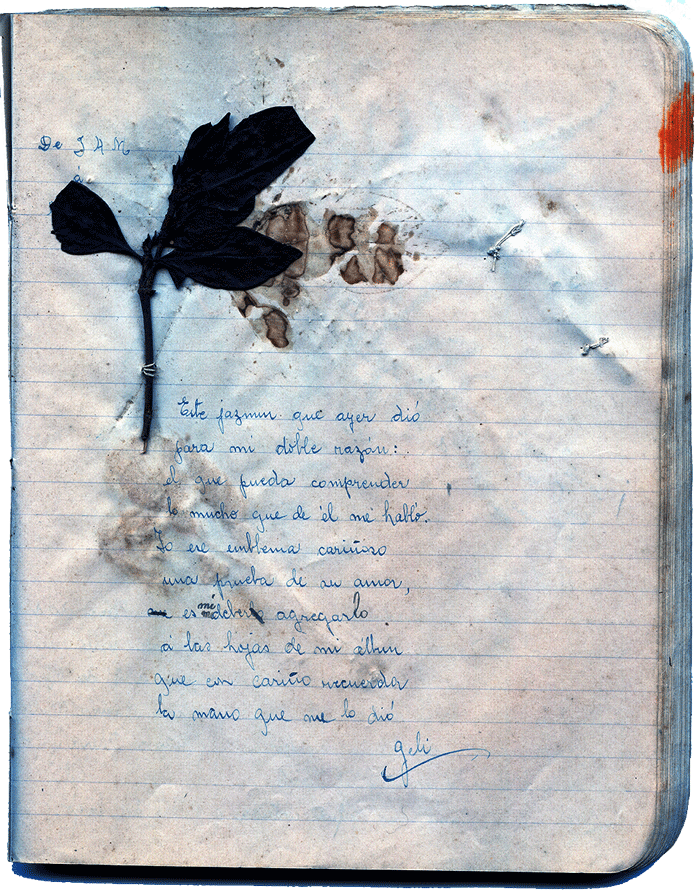 De J A M
á
Este jazmin que ayer dió
para mi doble razón:
el que pueda comprender
lo mucho que de él me habló.
Yo ese emblema cariñoso
una prueba de su amor,
es mi deber agregarlo
á las hojas de mi álbun
que con cariño recuerda
la mano que me lo dió
Geli